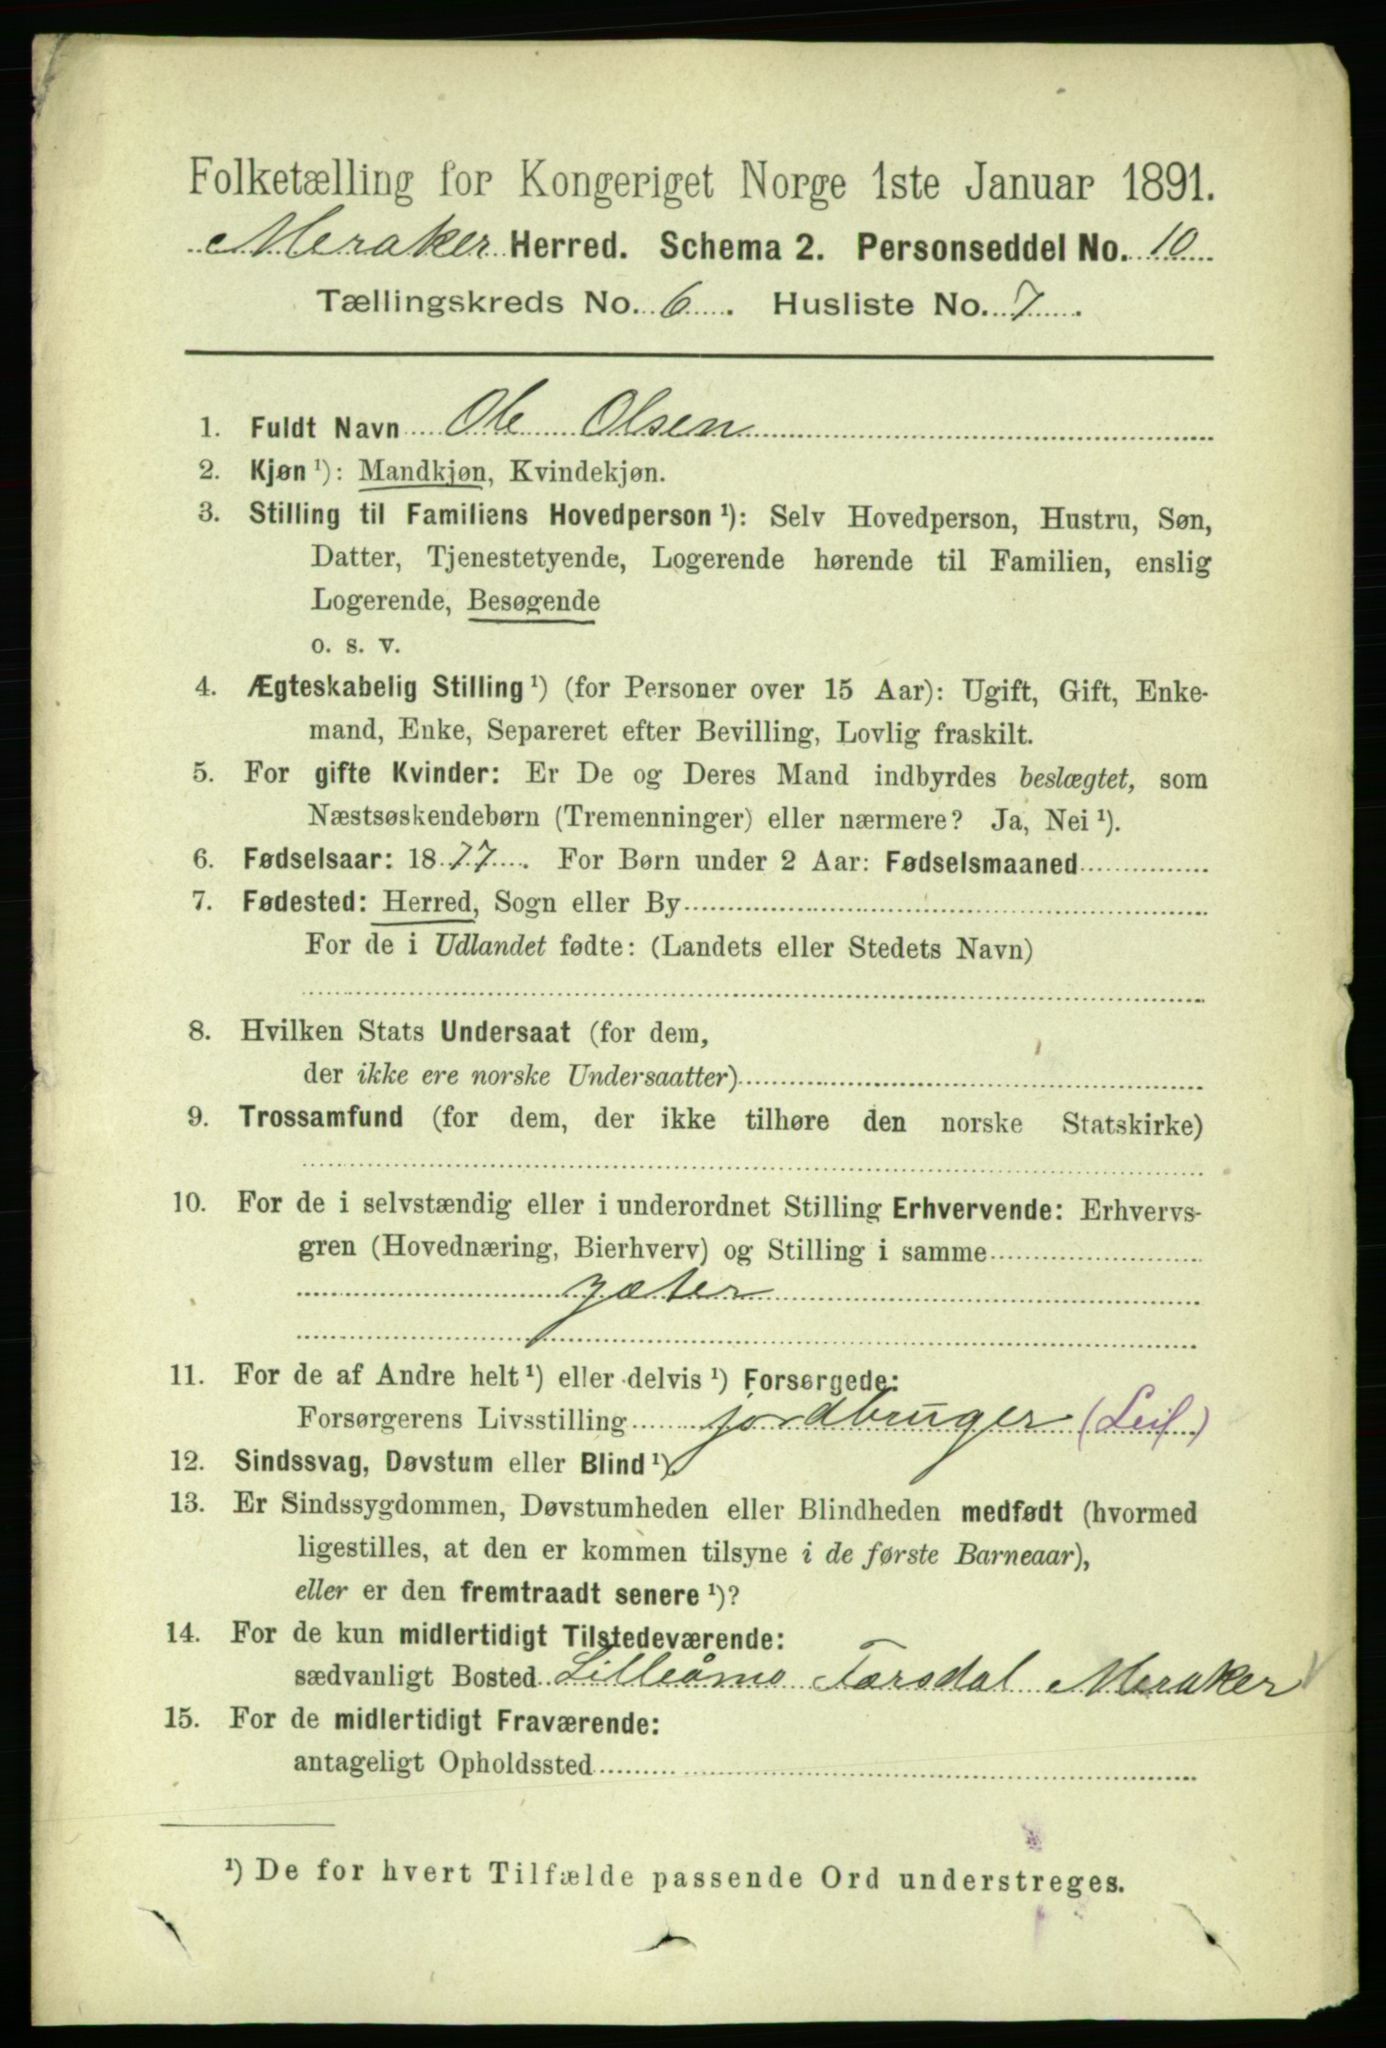 Folketælling for Kongeriget Norge 1ste Januar 1891.
Meraker Herred. Schema 2. Personseddel No. 10
Tællingskreds No. 6. Husliste No. 7.
1. Fuldt Navn Ole Olsen
2. Kjøn ¹): Mandkjøn, Kvindekjøn.
3. Stilling til Familiens Hovedperson ¹): Selv Hovedperson, Hustru, Søn,
Datter, Tjenestetyende, Logerende hørende til Familien, enslig
Logerende, Besøgende
o. s. v.
4. Ægteskabelig Stilling ¹) (for Personer over 15 Aar): Ugift, Gift, Enke-
mand, Enke, Separeret efter Bevilling, Lovlig fraskilt.
5. For gifte Kvinder: Er De og Deres Mand indbyrdes beslægtet, som
Næstsøskendebørn (Tremenninger) eller nærmere? Ja, Nei ¹).
6. Fødselsaar: 1877. For Børn under 2 Aar: Fødselsmaaned
7. Fødested: Herred, Sogn eller By
For de i Udlandet fødte: (Landets eller Stedets Navn)
8. Hvilken Stats Undersaat (for dem,
der ikke ere norske Undersaatter)
9. Trossamfund (for dem, der ikke tilhøre den norske Statskirke)
10. For de i selvstændig eller i underordnet Stilling Erhvervende: Erhvervs-
gren (Hovednæring, Bierhverv) og Stilling i samme
gæter
11. For de af Andre helt ¹) eller delvis ¹) Forsørgede:
Forsørgerens Livsstilling jordbruger (Leil.)
12. Sindssvag, Døvstum eller Blind ¹).
13. Er Sindssygdommen, Døvstumheden eller Blindheden medfødt (hvormed
ligestilles, at den er kommen tilsyne i de første Barneaar),
eller er den fremtraadt senere ¹)?
14. For de kun midlertidigt Tilstedeværende:
sædvanligt Bosted Lilleåmo Torsdal Meraker
15. For de midlertidigt Fraværende:
antageligt Opholdssted
¹) De for hvert Tilfælde passende Ord understreges.